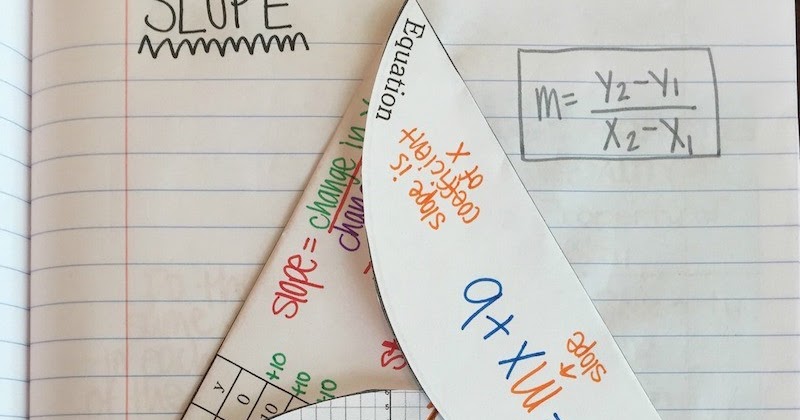 SLOPE
m= y₂-y₁
x₂-x₁
Equation
slope is
coefficient
of x
mx+b
slope
slope = change in
y
0
10
+10
+10
+10